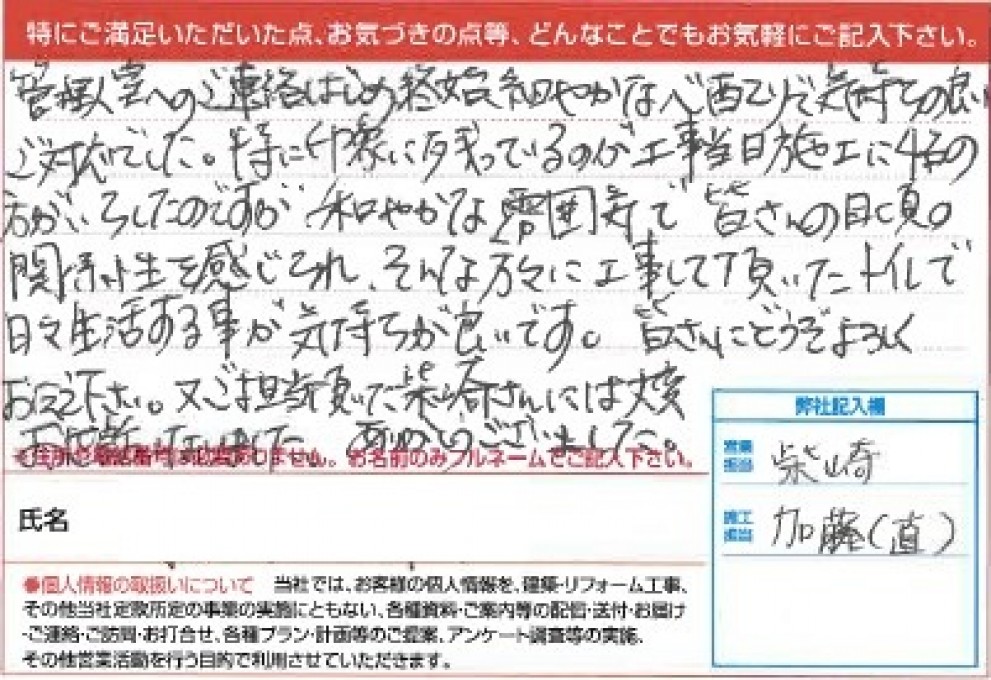 特にご満足いただいた点、お気づきの点等、どんなことでもお気軽にご記入下さい。
管理人室へのご連絡はじめ終始細やかなご配慮で気持ちの良い
ご対応でした。特に印象に残っているのが工事当日施工に4名の
方がいらしたのですが 和やかな雰囲気で 皆さんの日頃の
関係性を感じられ、そんな方々に工事して頂いたトイレで
日々生活する事が気持ちが良いです。皆さんにどうぞよろしく
お伝え下さい。又ご担当頂いた柴崎さんには大変
お世話になりました。ありがとうございました。
お名前のみフルネームでご記入下さい。
氏名
弊社記入欄
営業担当 柴崎
施工担当 加藤(直)
●個人情報の取扱いについて 当社では、お客様の個人情報を、建築・リフォーム工事、
その他当社定款所定の事業の実施にともない、各種資料・ご案内等の配信・送付・お届け
・ご連絡・ご訪問・お打合せ、各種プラン・計画等のご提案、アンケート調査等の実施、
その他営業活動を行う目的で利用させていただきます。